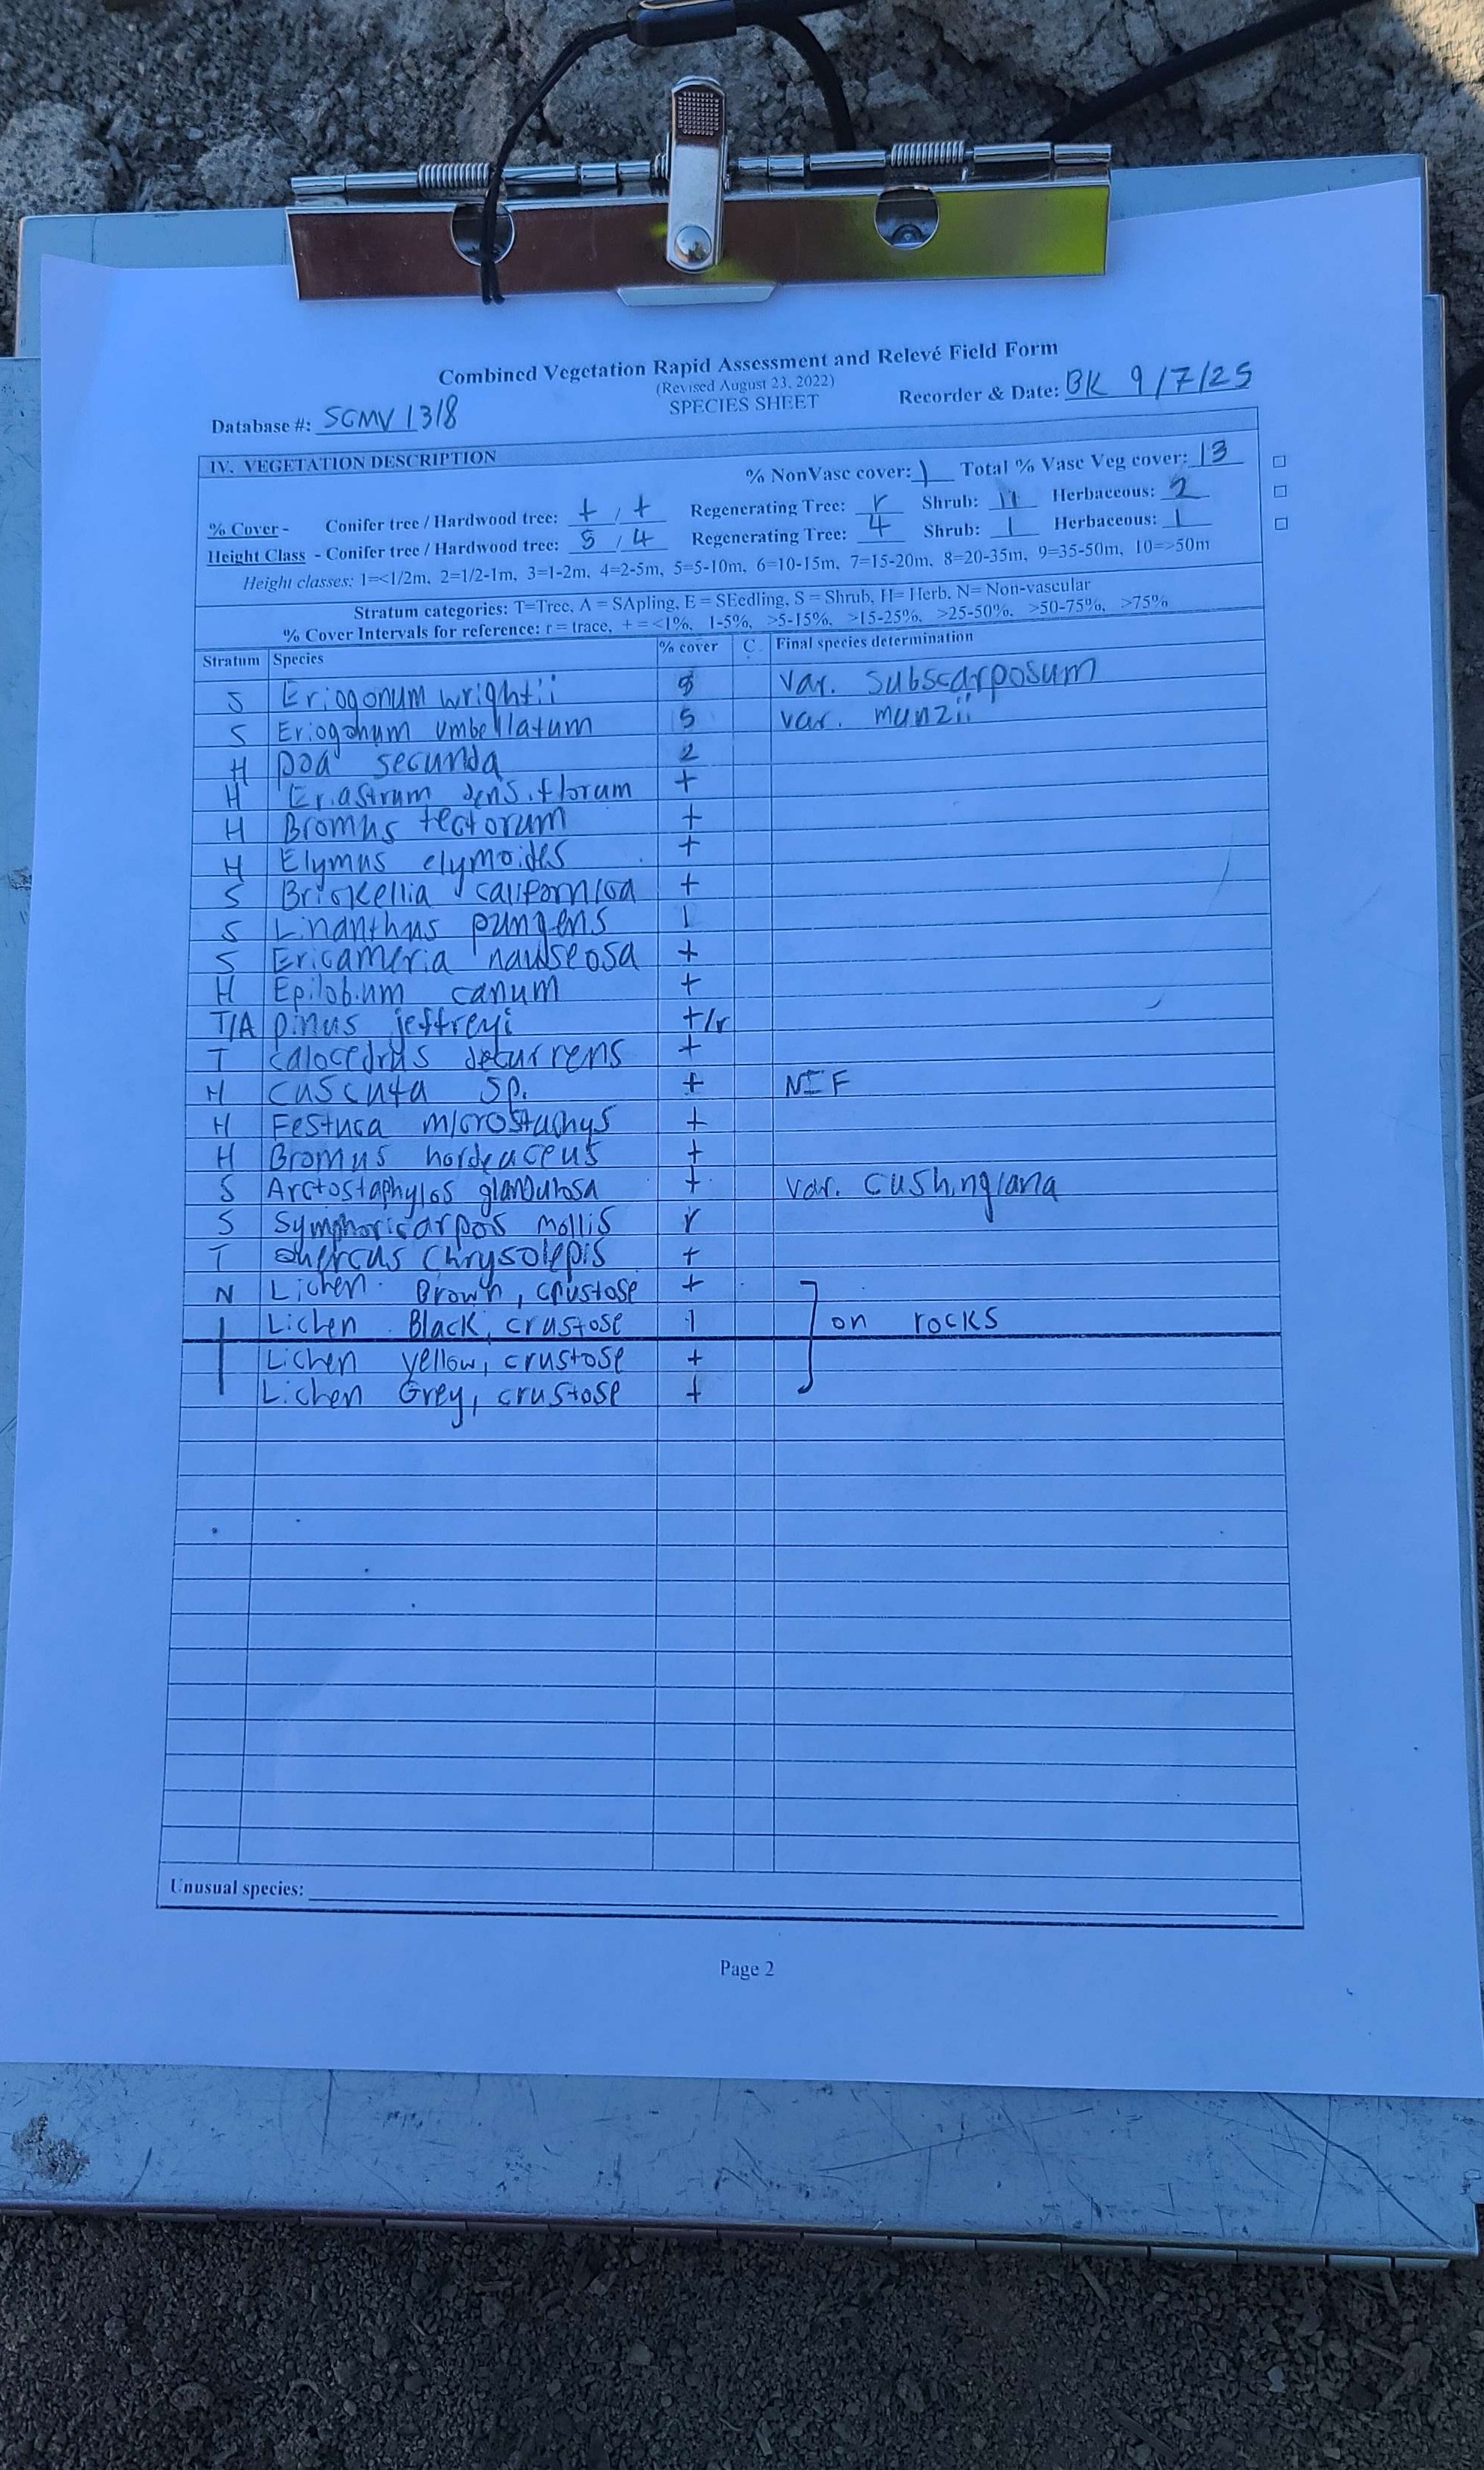 Combined Vegetation Rapid Assessment and Relevé Field Form
(Revised August 23, 2022)
Database #: SGMV 1318 SPECIES SHEET Recorder & Date: BK 9/7/25
IV. VEGETATION DESCRIPTION
% NonVasc cover: 1 Total % Vasc Veg cover: 13
% Cover - Conifer tree / Hardwood tree: + / + Regenerating Tree: r Shrub: 11 Herbaceous: 2
Height Class - Conifer tree / Hardwood tree: 5 / 4 Regenerating Tree: 4 Shrub: 1 Herbaceous: 1
Height classes: 1=<1/2m, 2=1/2-1m, 3=1-2m, 4=2-5m, 5=5-10m, 6=10-15m, 7=15-20m, 8=20-35m, 9=35-50m, 10=>50m
Stratum categories: T=Tree, A = SApling, E = SEedling, S = Shrub, H= Herb, N= Non-vascular
% Cover Intervals for reference: r = trace, + = <1%, 1-5%, >5-15%, >15-25%, >25-50%, >50-75%, >75%
Stratum Species % cover C Final species determination
S Eriogonum wrightii var. subscarposum
S Eriogonum umbellatum 5 var. munzii
H poa secunda 2
H Eriastrum densiflorum +
H Bromus tectorum +
H Elymus elymoides +
S Brickellia californica +
S Linanthus pungens 1
S Ericameria nauseosa +
H Epilobium canum +
T/A pinus jeffreyi +/r
T calocedrus decurrens +
H Cuscuta sp. + NIF
H Festuca microstachys +
H Bromus hordeaceus +
S Arctostaphylos glandulosa + var. cushingiana
S Symphoricarpos mollis r
T Quercus chrysolepis +
N Lichen Brown, crustose +
Lichen Black, crustose 1 on rocks
Lichen yellow, crustose +
Lichen Grey, crustose +
Unusual species:
Page 2